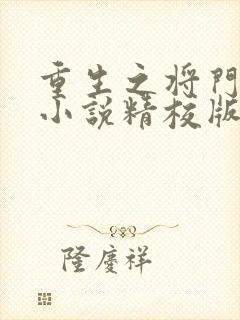 重生之将門
小説精校版
隆慶祥